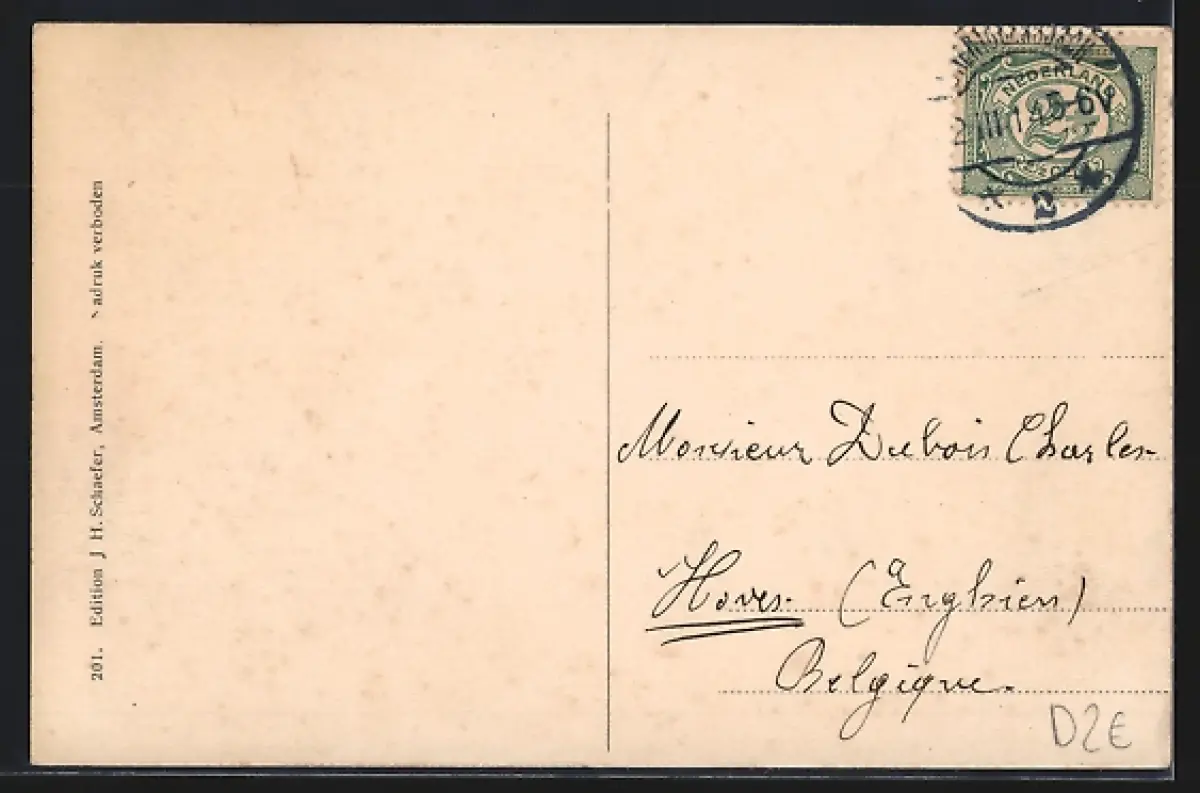 201. Edition J H. Schaefer, Amsterdam. adruk verboden
NEDERLAND
2½
2 III 1 5-6V
2
Monsieur Dubois Charles
Hoves (Enghien)
Belgique
D2€